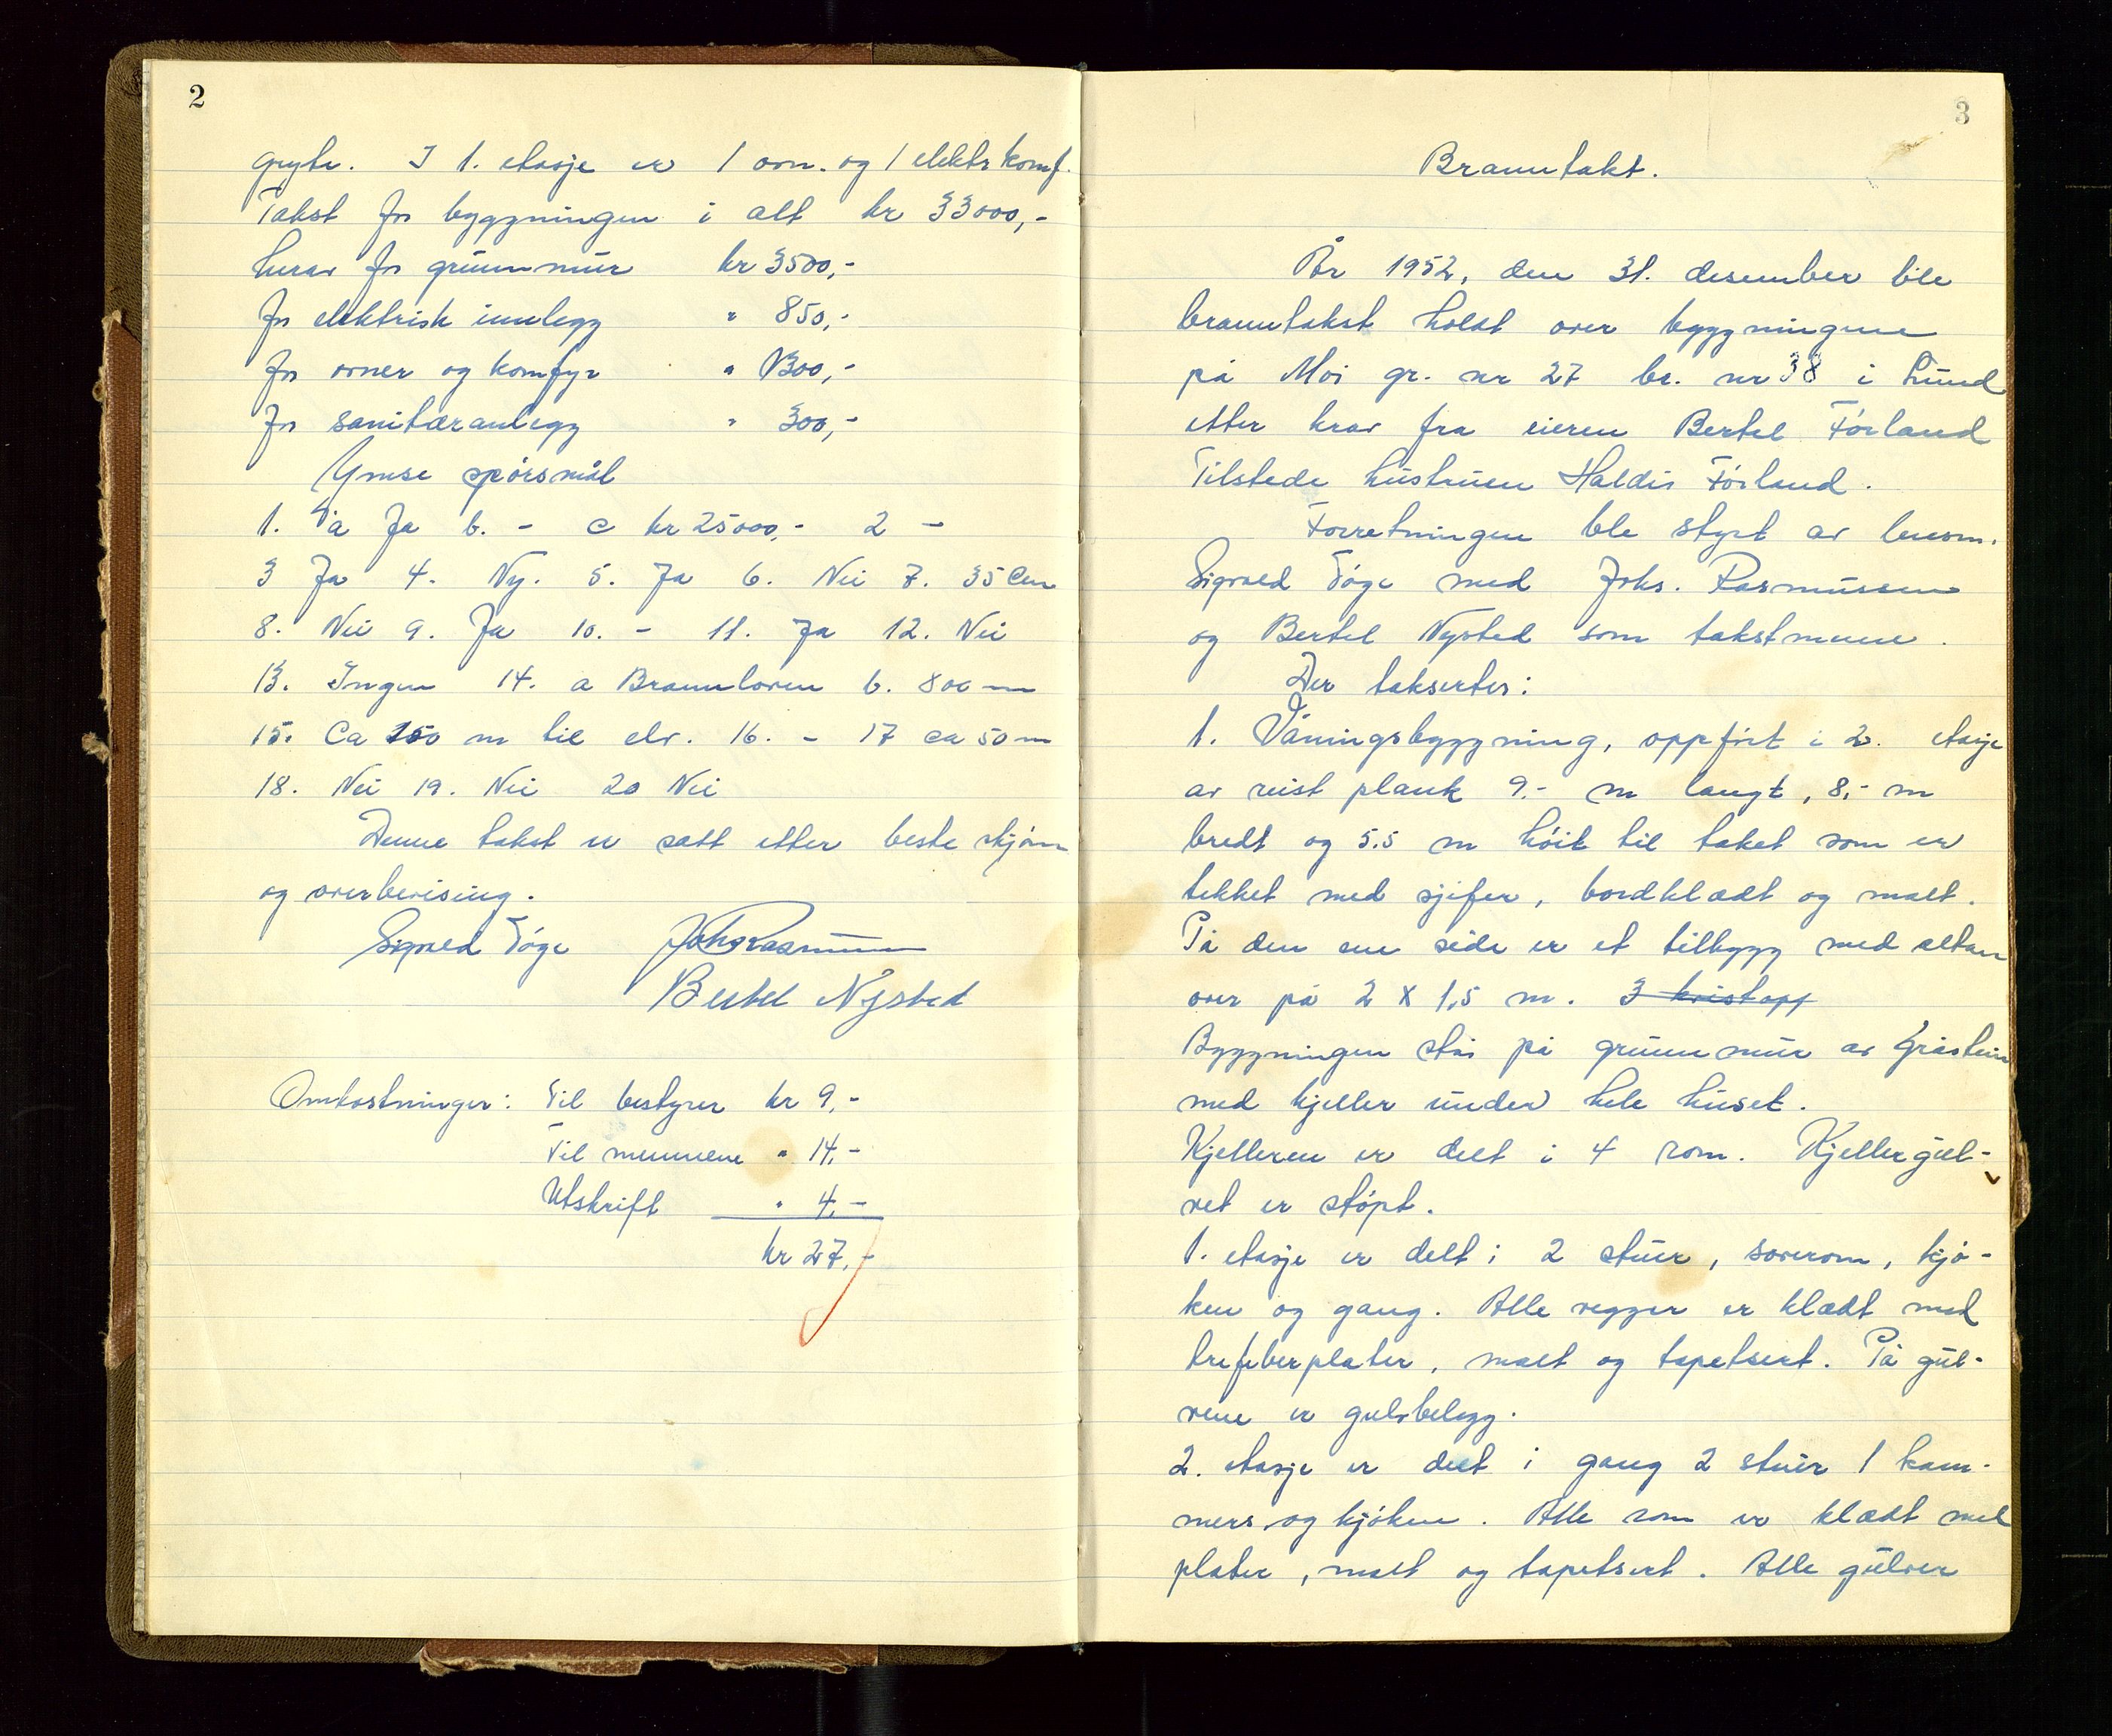 2
gryte. I 1. etasje er 1 ovn. og 1 elektr komf.
Takst for byggningen i alt kr 33000,-
herav for grunnmur kr 3500,-
for elektrisk innlegg " 850,-
for ovner og komfyr " 1300,-
for sanitæranlegg " 300,-
Ymse spørsmål
1. a Ja b. - c kr 25000,- 2 -
3 Ja 4. Ny. 5. Ja 6. Nei 7. 35 Cm
8. Nei 9. Ja 10. - 11. Ja 12. Nei
13. Ingen 14. a Brannloven b. 800 m
15. Ca 150 m til elv. 16. - 17 ca 50 m
18. Nei 19. Nei 20 Nei
Denne takst er satt etter beste skjønn
og overbevising.
Sigvald Tóge Johs Rasmussen
Bertel Nysted
Omkostninger: Til bestyrer kr 9,-
Til mennene " 14,-
Utskrift " 4,-
kr 27,-
3
Branntakt.
År 1952, den 31. desember ble
branntakst holdt over byggningene
på Moi gr. nr 27 br. nr 38 i Lund
etter krav fra eieren Bertel Fórland
Tilstede hustruen Haldis Fórland.
Forretningen ble styrt av lensm.
Sigvald Tóge med Johs. Rasmussen
og Bertel Nysted som takstmenn.
Der taksertes:
1. Våningsbyggning, oppfórt i 2. etasje
av reist plank 9.- m langt, 8,- m
bredt og 5.5 m hóit til taket som er
tekket med sjifer, bordklædt og malt.
På den ene side er et tilbygg med altan
over på 2 x 1,5 m. 3 kvistopp
Byggningen står på grunnmur av Gråstein
med kjeller under hele huset.
Kjelleren er delt i 4 rom. Kjellergul-
vet er stópt.
1. etasje er delt i 2 stuer, soverom, kjó-
ken og gang. Alle vegger er klædt med
trefiberplater, malt og tapetsert. På gul-
vene er gulvbelegg.
2. etasje er delt i gang 2 stuer 1 kam-
mers og kjóken. Alle rom er klædt med
plater, malt og tapetsert. Alle gulver